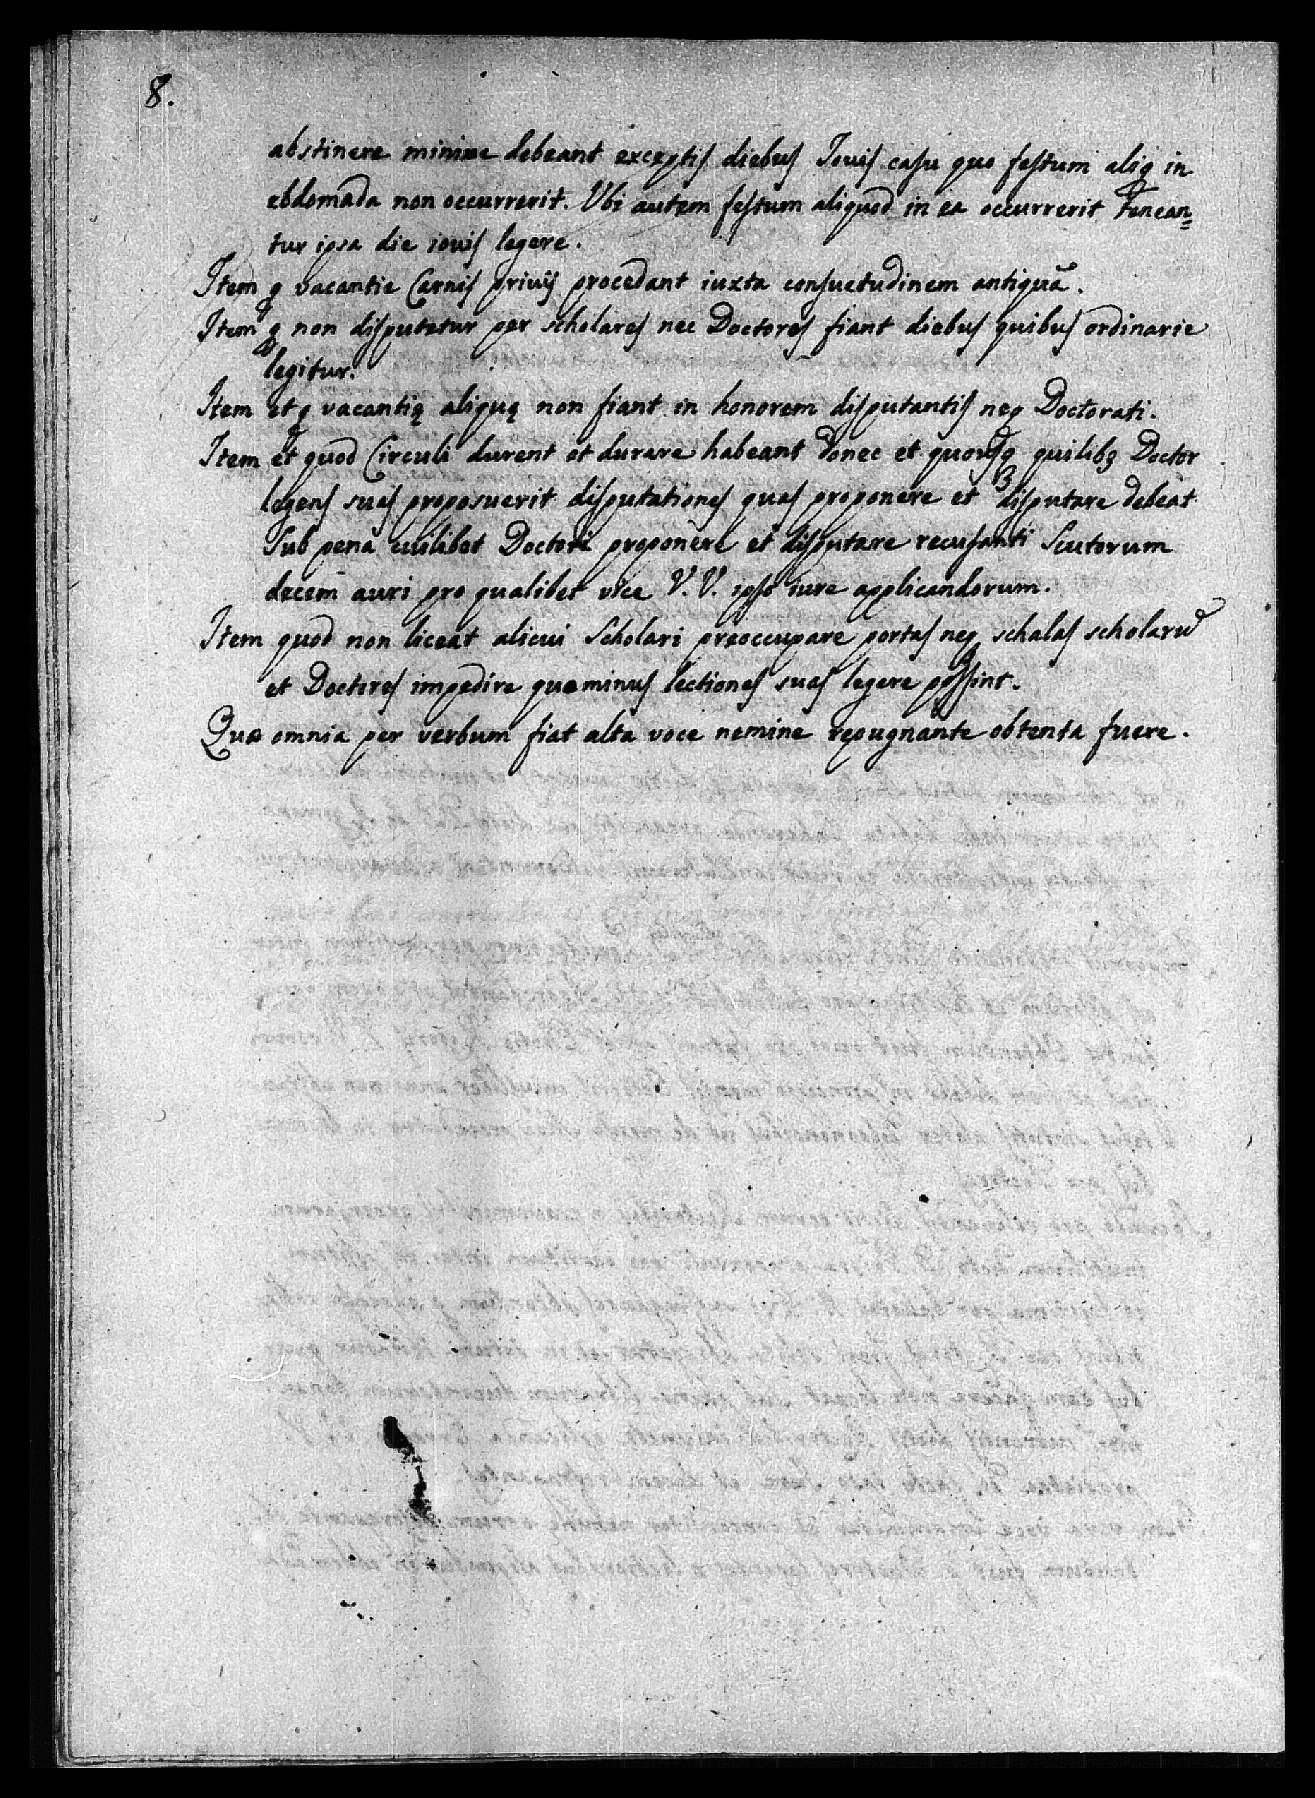 8.
abstinere minime debeant exceptis diebus Jouis casu quo festum aliq in
ebdomada non occurrerit. Vbi autem festum aliquod in ea occurrerit Tenean=
tur ipsa die iouis legere.
Item q vacantie Carnis priuij procedant iuxta consuetudinem antiquā.
Item q non disputetur per scholares nec Doctores fiant diebus quibus ordinarie
legitur.
Item et q vacantię aliquę non fiant in honorem disputantis neq Doctorati.
Item et quod Circuli durent et durare habeant donec et quousq quilibꝫ Doctor
legens suas proposuerit disputationes quas proponere et disputare debeat
Sub pena cuilibet Doctori proponere et disputare recusanti Scutorum
decem auri pro qualibet vice V. V. ipso iure applicandorum.
Item quod non liceat alicui Scholari preoccupare portas neq schalas scholarū
et Doctores impedire quominus lectiones suas legere possint.
Quæ omnia per verbum fiat alta voce nemine repugnante obtenta fuere.